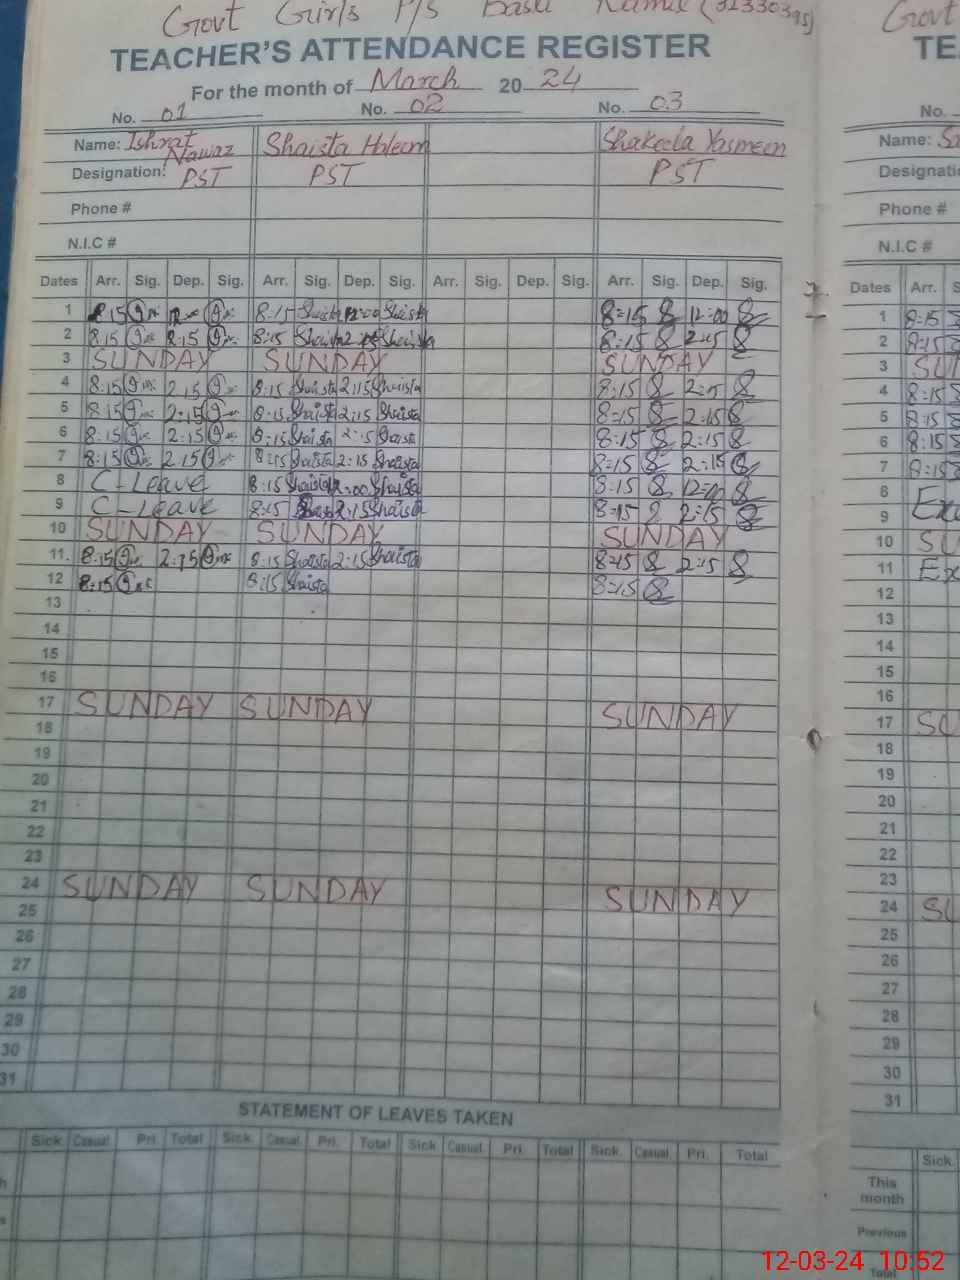 Govt Girls P/S Basti (31330395) Govt
TEACHER'S ATTENDANCE REGISTER TE
For the month of March 2024
No. 01 No. 02 No. 03 No.
Name: Ishrat Nawaz Shaista Shakeela Yasmeen Name:
Designation: PST PST PST Designati
Phone # Phone #
N.I.C # N.I.C #
Dates Arr. Sig. Dep. Sig. Arr. Sig. Dep. Sig. Arr. Sig. Dep. Sig. Arr. Sig. Dep. Sig. Dates Arr. S
1 8:15 8:15 Shaista 12:00 Shaista 8:15 12:00 1 8:15
2 8:15 2:15 8:15 Shaista 2:15 Shaista 8:15 2:15 2 8:15
3 SUNDAY SUNDAY SUNDAY 3 SU
4 8:15 2:15 8:15 Shaista 2:15 Shaista 8:15 2:15 4 8:15
5 8:15 2:15 8:15 Shaista 2:15 Shaista 8:15 2:15 5 8:15
6 8:15 2:15 8:15 Shaista 2:15 Shaista 8:15 2:15 6 8:15
7 8:15 2:15 8:15 Shaista 2:15 Shaista 8:15 2:15 7 8:15
8 C-Leave 8:15 Shaista 12:00 Shaista 8:15 12:00 8
9 C-Leave 8:15 2:15 Shaista 8:15 2:15 9
10 SUNDAY SUNDAY SUNDAY 10 SU
11. 8:15 2:15 8:15 Shaista 2:15 Shaista 8:15 2:15 11 Ex
12 8:15 8:15 Shaista 8:15 12
13 13
14 14
15 15
16 16
17 SUNDAY SUNDAY SUNDAY 17 SU
18 18
19 19
20 20
21 21
22 22
23 23
24 SUNDAY SUNDAY SUNDAY 24 SU
25 25
26 26
27 27
28 28
29 29
30 30
31 31
STATEMENT OF LEAVES TAKEN
Sick Casual Pri. Total Sick Casual Pri. Total Sick Casual. Pri. Total Sick. Casual. Pri. Total Sick.
This month
Previous
Total
12-03-24 10:52